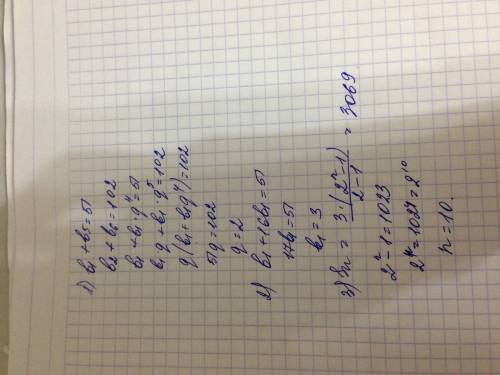 1) b₁+b₅=51
b₂+b₆=102
b₁+b₁q⁴=51
b₁q+b₁·q⁵=102
q(b₁+b₁q⁴)=102
51q=102
q=2
2) b₁+16b₁=51
17b₁=51
b₁=3
3) Sn = 3(2ⁿ-1)/2-1 = 3069
2ⁿ-1=1023
2ⁿ=1024=2¹⁰
n=10.